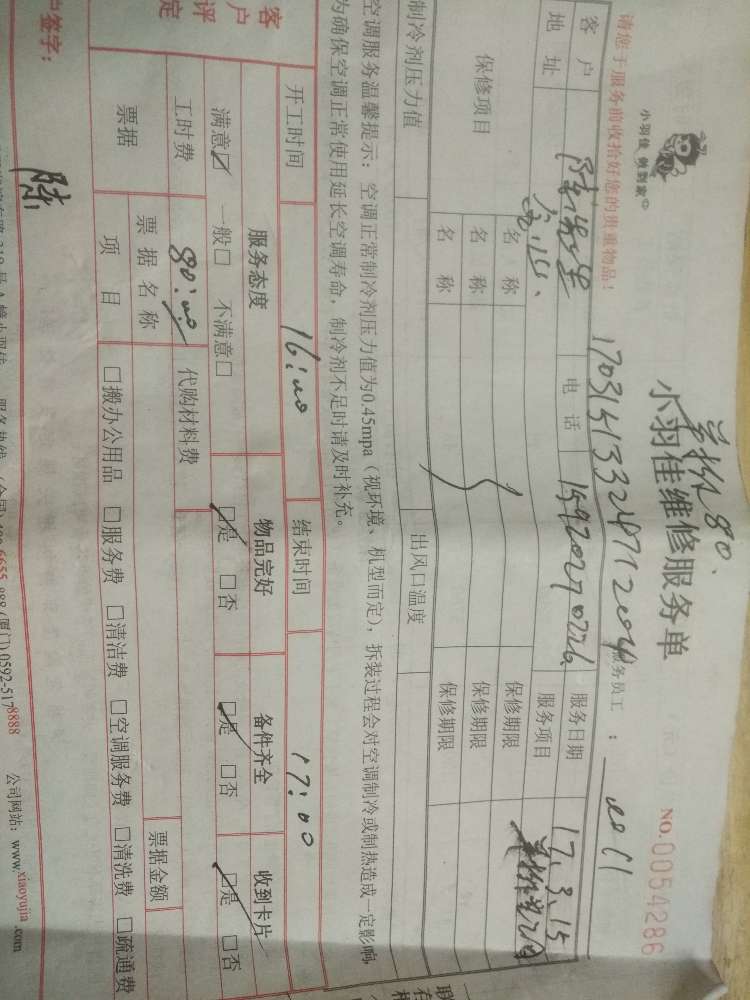 请您于服务前收拾好您的贵重物品！
小羽佳 做到家
单拆80、
小羽佳维修服务单
NO.0054286
服务员工：
客户 电话 服务日期 17.3.15
地址 服务项目
保修项目 名称 保修期限
名称 保修期限
名称 保修期限
制冷剂压力值 出风口温度
空调服务温馨提示：空调正常制冷剂压力值为0.45mpa（视环境、机型而定），拆装过程会对空调制冷或制热造成一定影响，
为确保空调正常使用延长空调寿命，制冷剂不足时请及时补充。
开工时间 16:00 结束时间 17:00
客户评定 服务态度 物品完好 备件齐全 收到卡片
满意☑ 一般☐ 不满意☐ ☑是 ☐否 ☑是 ☐否 ☑是 ☐否
工时费 80:00 代购材料费
票据 票据名称 票据金额
项目 ☐搬办公用品 ☐服务费 ☐清洁费 ☐空调服务费 ☐清洗费 ☐疏通费
户签字： 陈
(厦门)0592-5178888 公司网站：www.xiaoyujia.com